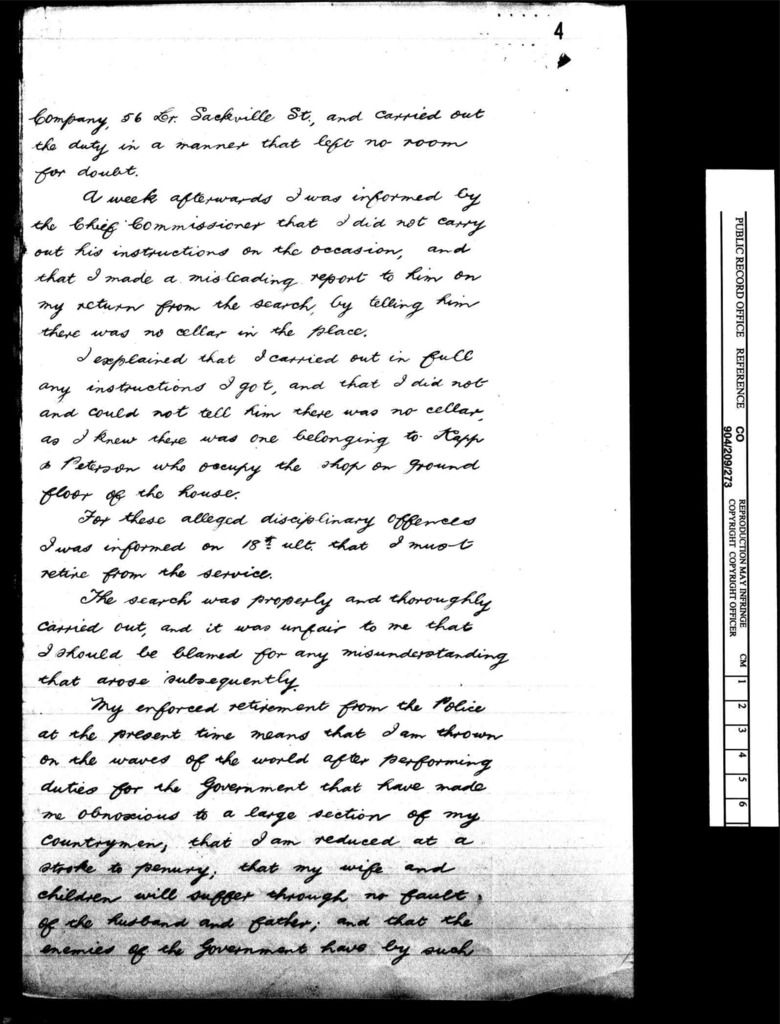 4
Company, 56 Lr. Sackville St., and carried out
the duty in a manner that left no room
for doubt.
A week afterwards I was informed by
the Chief Commissioner that I did not carry
out his instructions on the occasion, and
that I made a misleading report to him on
my return from the search, by telling him
there was no cellar in the place.
I explained that I carried out in full
any instructions I got, and that I did not
and could not tell him there was no cellar,
as I knew there was one belonging to Kapp
& Peterson who occupy the shop on ground
floor of the house.
For these alleged disciplinary offences
I was informed on 18th ult. that I must
retire from the service.
The search was properly and thoroughly
carried out, and it was unfair to me that
I should be blamed for any misunderstanding
that arose subsequently.
My enforced retirement from the Police
at the present time means that I am thrown
on the waves of the world after performing
duties for the Government that have made
me obnoxious to a large section of my
countrymen; that I am reduced at a
stroke to penury; that my wife and
children will suffer through no fault
of the husband and father; and that the
enemies of the Government have by such
PUBLIC RECORD OFFICE REFERENCE CO
904/209/273
REPRODUCTION MAY INFRINGE
COPYRIGHT COPYRIGHT OFFICER
CM 1 2 3 4 5 6